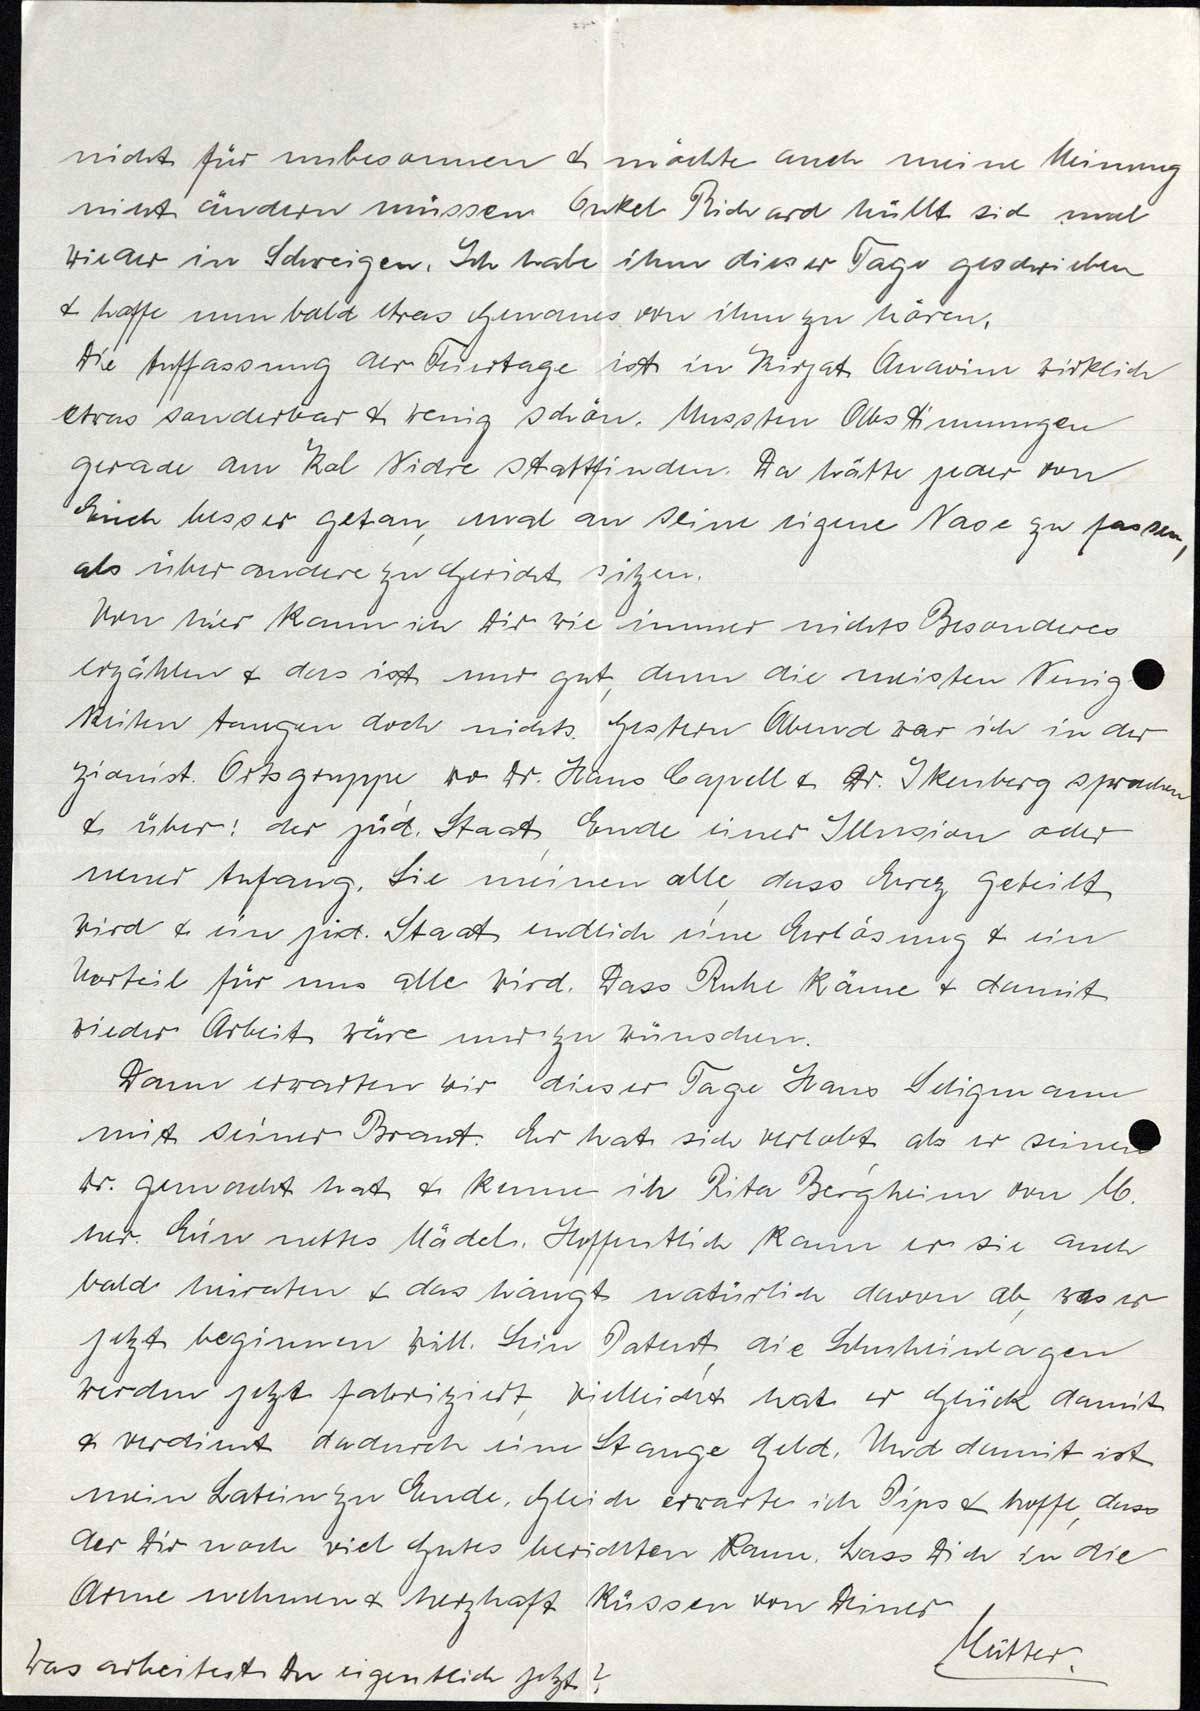 nicht für unbesonnen & möchte auch meine Meinung
nicht ändern müssen. Onkel Richard hüllt sich mal
wieder in Schweigen. Ich habe ihm dieser Tage geschrieben
& hoffe nun bald etwas Genaues von ihm zu hören.
Die Auffassung der Feiertage ist in Kirjat Anavim wirklich
etwas sonderbar & wenig schön. Mussten Abstimmungen
gerade am Kol Nidre stattfinden. Da hätte jeder von
Euch besser getan, mal an seine eigene Nase zu fassen,
als über andere zu Gericht sitzen.
Von hier kann ich Dir wie immer nichts Besonderes
erzählen & das ist nur gut, denn die meisten Neuig
keiten taugen doch nichts. Gestern Abend war ich in der
zionist. Ortsgruppe wo Dr. Hans Capell & Dr. Ikenberg sprachen
& über: der jüd. Staat, Ende einer Illusion oder
neuer Anfang. Sie meinen alle, dass Erez geteilt
wird & ein jüd. Staat endlich eine Erlösung & ein
Vorteil für uns alle wird. Dass Ruhe käme & damit
wieder Arbeit wäre nur zu wünschen.
Dann erwarten wir dieser Tage Hans Seligmann
mit seiner Braut. Er hat sich verlobt als er seinen
Dr. gemacht hat & kenne ich Rita Bergheim von M.
her. Ein nettes Mädel. Hoffentlich kann er sie auch
bald heiraten & das hängt natürlich davon ab, was er
jetzt beginnen will. Sein Patent, die Schuheinlagen
werden jetzt fabriziert, vielleicht hat er Glück damit
& verdient dadurch eine Stange Geld. Und damit ist
mein Latein zu Ende. Gleich erwarte ich Pips & hoffe, dass
der Dir noch viel Gutes berichten kann. Lass Dich in die
Arme nehmen & herzhaft küssen von Deiner
Mutter.
Was arbeitest Du eigentlich jetzt?